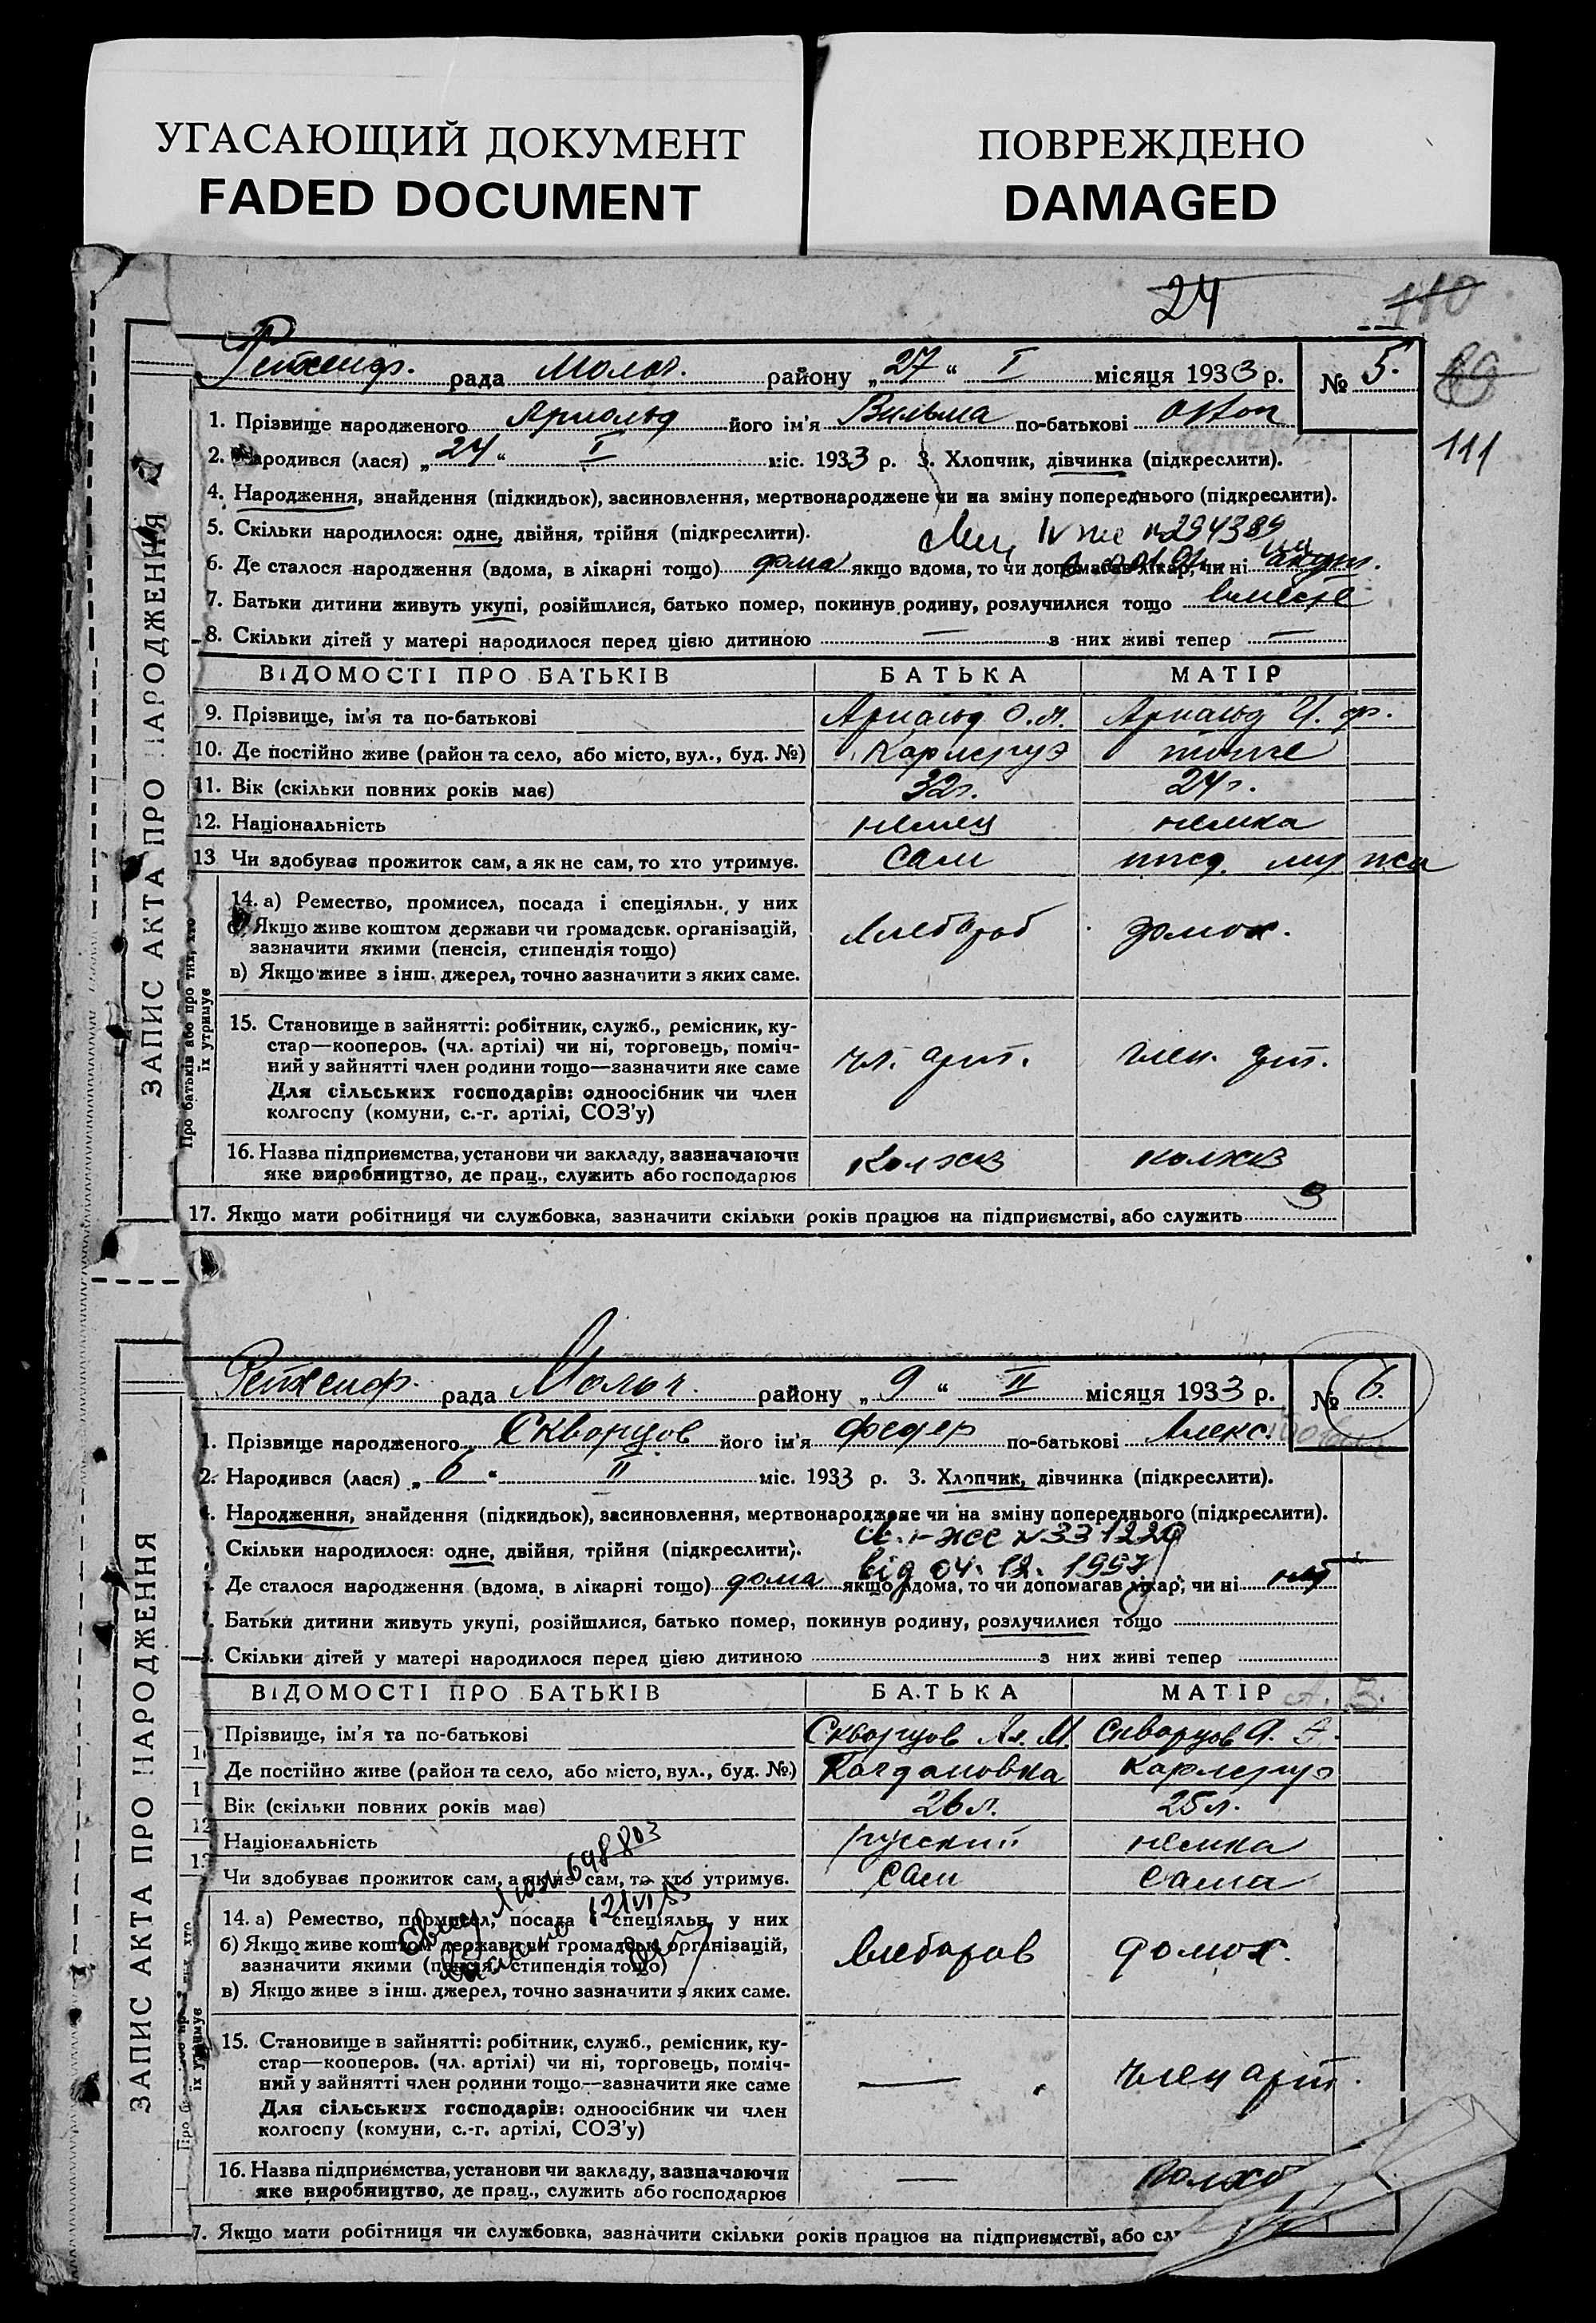 УГАСАЮЩИЙ ДОКУМЕНТ
FADED DOCUMENT
ПОВРЕЖДЕНО
DAMAGED
24
110
111
ЗАПИС АКТА ПРО НАРОДЖЕННЯ
Рейхенф. рада Молоч. району „27“ I місяця 1933 р. № 5.
1. Прізвище народженого Арнольд його ім'я Вильма по-батькові Отто
2. Народився (лася) „24“ I міс. 1933 р. 3. Хлопчик, дівчинка (підкреслити).
4. Народження, знайдення (підкидьок), засиновлення, мертвонароджене чи на зміну попереднього (підкреслити).
5. Скільки народилося: одне, двійня, трійня (підкреслити).
IV №294389
6. Де сталося народження (вдома, в лікарні тощо) дома якщо вдома, то чи допомагав лікар, чи ні акуш.
7. Батьки дитини живуть укупі, розійшлися, батько помер, покинув родину, розлучилися тощо вместе
8. Скільки дітей у матері народилося перед цією дитиною — з них живі тепер —
ВІДОМОСТІ ПРО БАТЬКІВ БАТЬКА МАТІР
9. Прізвище, ім'я та по-батькові Арнольд О. Я. Арнольд И. Фр.
10. Де постійно живе (район та село, або місто, вул., буд. №) Карлсруэ тоже
11. Вік (скільки повних років має) 32г. 24г.
12. Національність немец немка
13 Чи здобуває прожиток сам, а як не сам, то хто утримує. сам мужа
Про батьків або про тих, хто їх утримує
14. а) Ремество, промисел, посада і спеціяльн. у них
б) Якщо живе коштом держави чи громадськ. організацій,
зазначити якими (пенсія, стипендія тощо)
в) Якщо живе з інш. джерел, точно зазначити з яких саме.
хлебороб домох.
15. Становище в зайнятті: робітник, служб., ремісник, ку-
стар—кооперов. (чл. артілі) чи ні, торговець, поміч-
ний у зайнятті член родини тощо—зазначити яке саме
Для сільських господарів: одноосібник чи член
колгоспу (комуни, с.-г. артілі, СОЗ'у)
чл. арт. член. арт.
16. Назва підприємства, установи чи закладу, зазначаючи
яке виробництво, де прац., служить або господарює
колхоз колхоз
17. Якщо мати робітниця чи службовка, зазначити скільки років працює на підприємстві, або служить 3
ЗАПИС АКТА ПРО НАРОДЖЕННЯ
Рейхенф. рада Молоч. району „9“ II місяця 1933 р. № 6.
1. Прізвище народженого Скворцов його ім'я Федер по-батькові Алекс.
2. Народився (лася) „6“ II міс. 1933 р. 3. Хлопчик, дівчинка (підкреслити).
Народження, знайдення (підкидьок), засиновлення, мертвонароджене чи на зміну попереднього (підкреслити).
№331220
Скільки народилося: одне, двійня, трійня (підкреслити).
від 04. 12. 1997
Де сталося народження (вдома, в лікарні тощо) дома якщо вдома, то чи допомагав лікар, чи ні нет
Батьки дитини живуть укупі, розійшлися, батько помер, покинув родину, розлучилися тощо
Скільки дітей у матері народилося перед цією дитиною з них живі тепер
ВІДОМОСТІ ПРО БАТЬКІВ БАТЬКА МАТІР
Прізвище, ім'я та по-батькові Скворцов Ал. М. Скворцов А.
Де постійно живе (район та село, або місто, вул., буд. №) Богдановка Карлсруэ
Вік (скільки повних років має) 26л. 25л.
Національність русский немка
Чи здобуває прожиток сам, а як не сам, то хто утримує. сам сама
698803
14. а) Ремество, промисел, посада і спеціяльн. у них
б) Якщо живе коштом держави чи громадськ. організацій,
зазначити якими (пенсія, стипендія тощо)
в) Якщо живе з інш. джерел, точно зазначити з яких саме.
хлебороб домох.
15. Становище в зайнятті: робітник, служб., ремісник, ку-
стар—кооперов. (чл. артілі) чи ні, торговець, поміч-
ний у зайнятті член родини тощо—зазначити яке саме
Для сільських господарів: одноосібник чи член
колгоспу (комуни, с.-г. артілі, СОЗ'у)
— член арт.
16. Назва підприємства, установи чи закладу, зазначаючи
яке виробництво, де прац., служить або господарює
— колхоз
7. Якщо мати робітниця чи службовка, зазначити скільки років працює на підприємстві, або сл